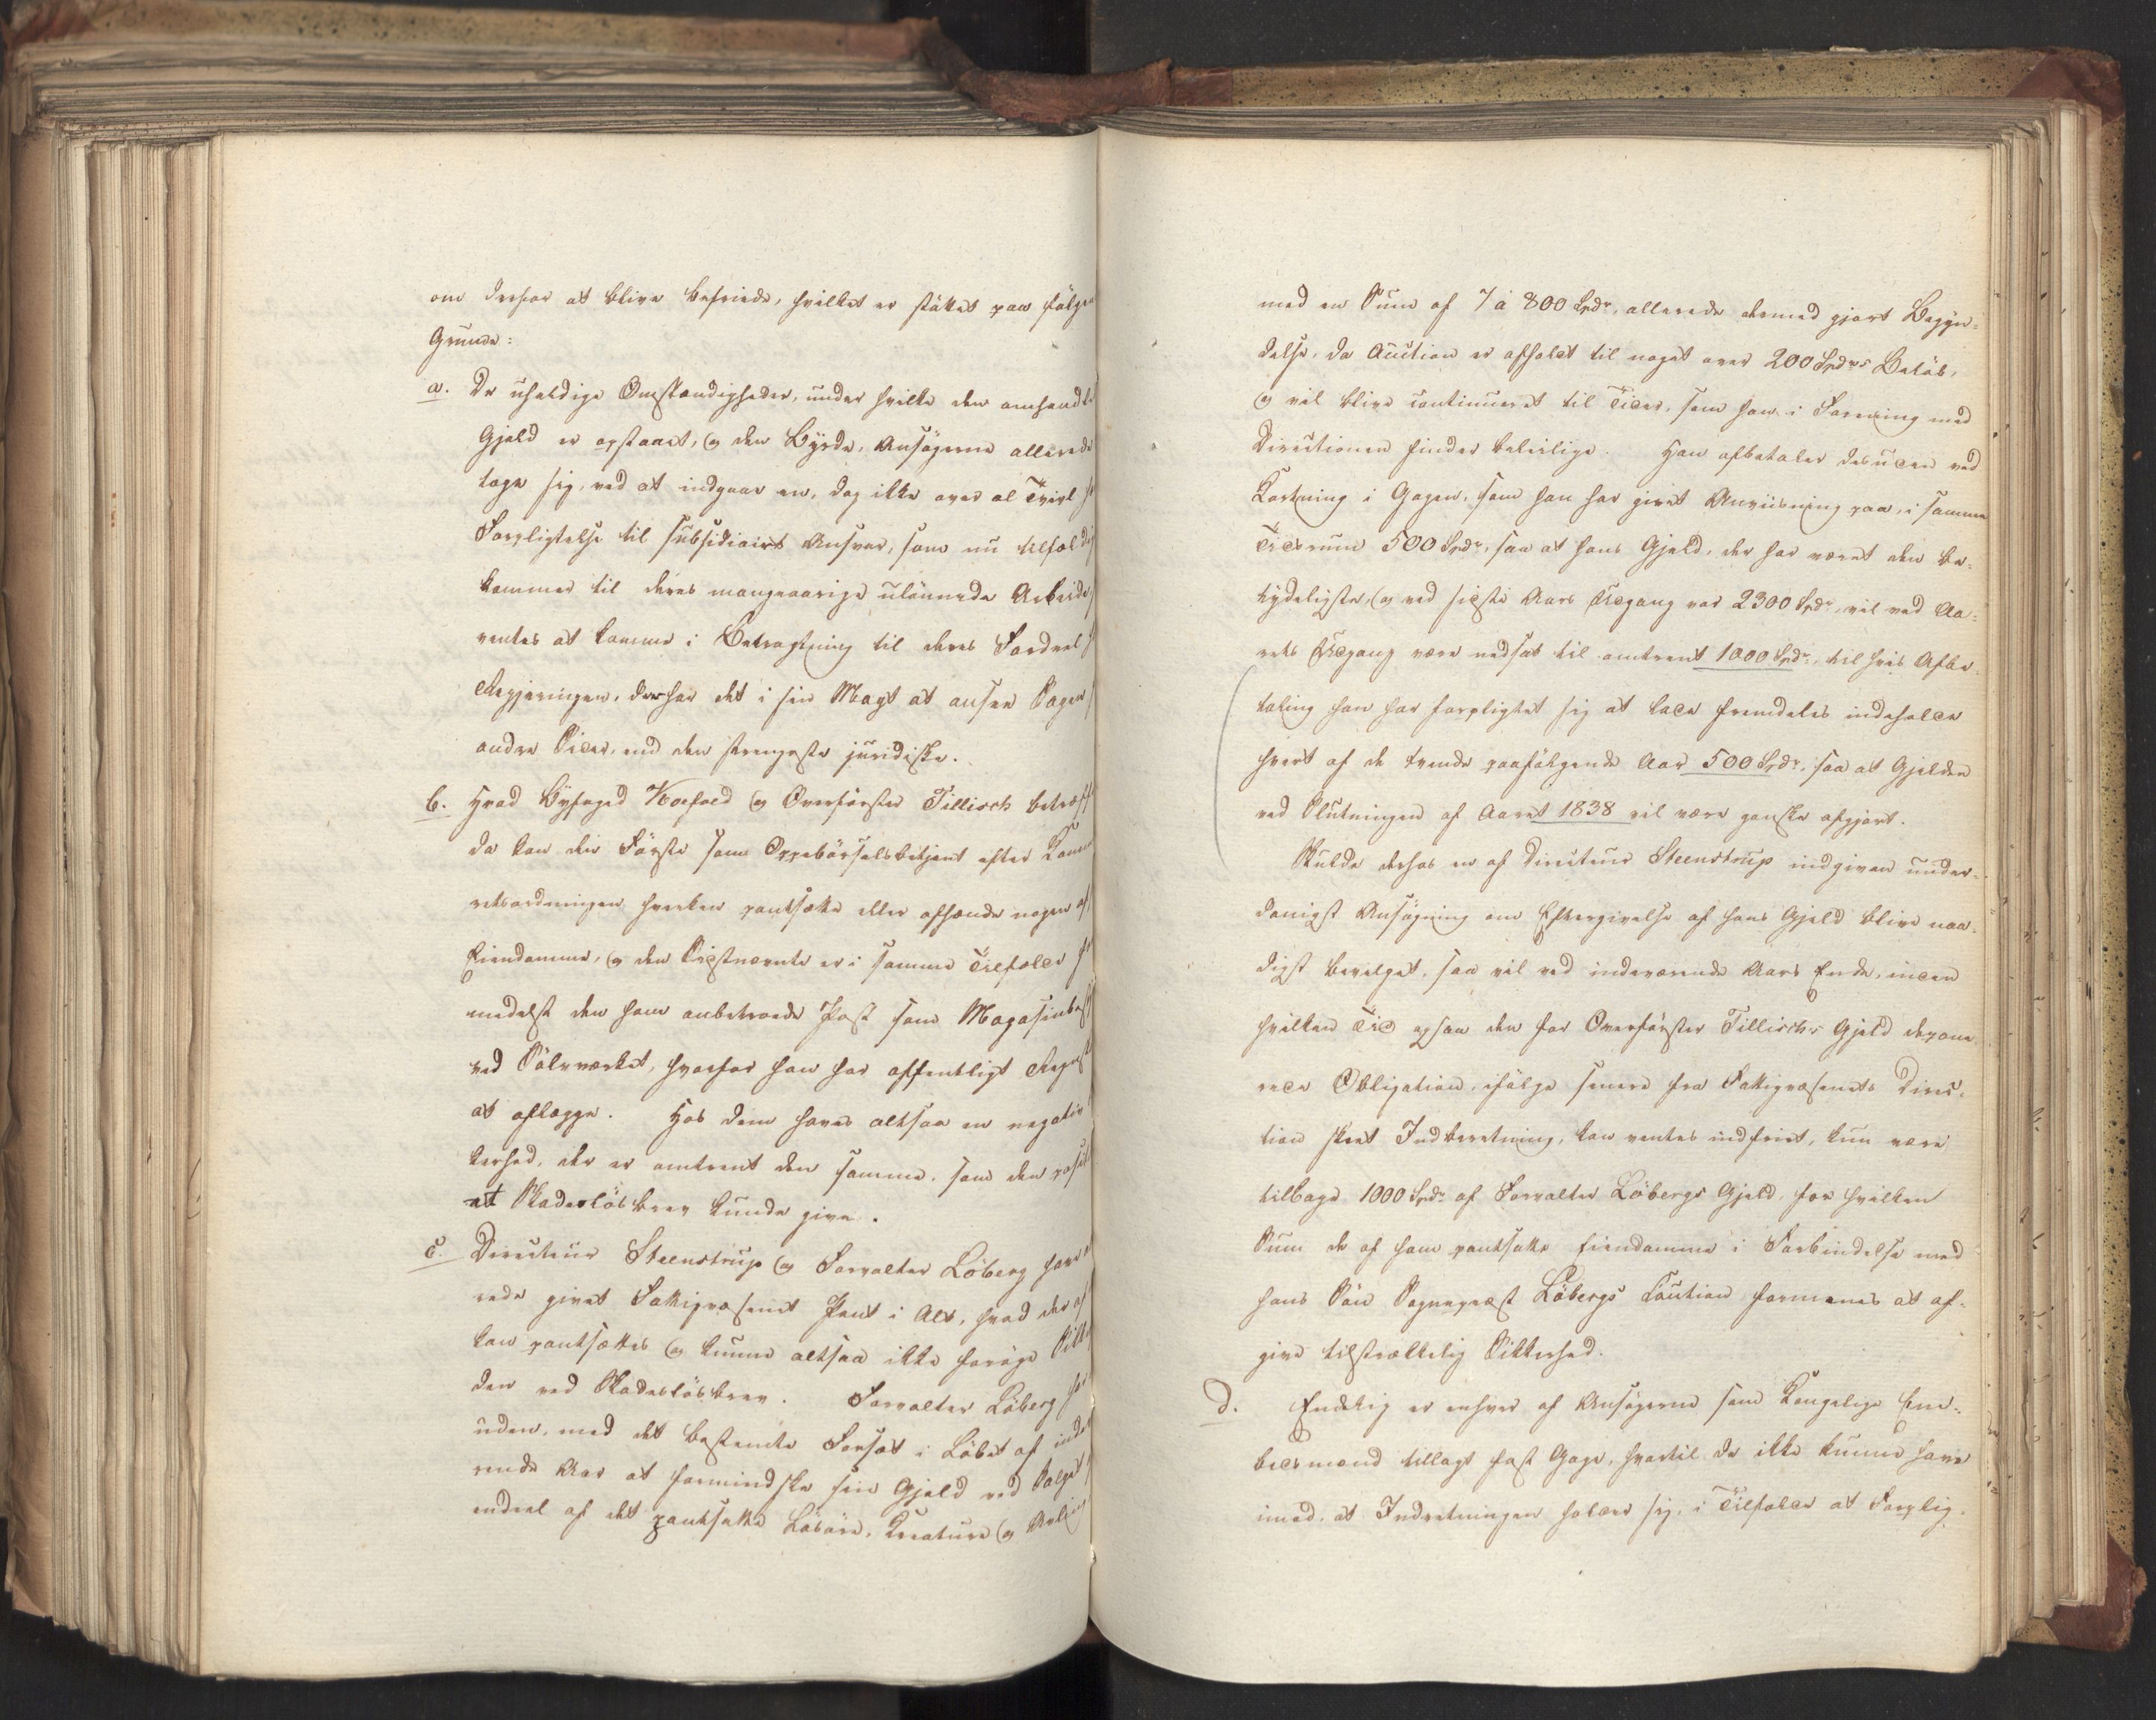 om derfor at blive befriede, hvilket er støttet paa følgen
Grunde:
a. De uheldige Omstændigheder, under hvilke den omhandle
Gjæld er opstaaet, og den Byrde, Ansøgerne allerede
toge sig, ved at indgaae en, dog ikke over al Tvivl
Forpligtelse til subsidiairt Ansvar, som nu tilfældig
kommer til deres mangeaarige ulønnede Arbeide,
ventes at komme i Betragtning til deres Fordeel
Regjeringen, der har det i sin Magt at ansee Sagen
andre Sider, end den strengeste juridiske.
b. Hvad Byfoged Koefoed og Overførster Tillisch betræff
da kan den Første som Oppebørselsbetjent efter Kam
retsordningen hverken pantsætte eller afhænde nogen af
Eiendomme, og den Sidstnævnte er i samme Tilfælde
medelst den ham anbetroede Post som Magasinbest
ved Sølvværket, hvorfor han har offentligt Regnsk
at aflægge. Hos dem haves altsaa en negativ
kerhed, der er omtrent den samme, som den posit
et Skadesløsbrev kunde give.
c. Directeur Steenstrup og Forvalter Løberg have
rede givet Fattigvæsenet Pant i Alt, hvad der af
kan pantsættes og kunne altsaa ikke forøge Sikk
den ved Skadesløsbrev. Forvalter Løberg har
uden, med det bestemte Forsæt i Løbet af inde
rende Aar at formindske sin Gjæld ved Salget
endeel af det pantsatte Løsøre, Kreature og Avling
med en Sum af 7 à 800 Spdr, allerede dermed gjort Begyn-
delse, da Auction er afholdt til noget over 200 Spdrs Beløb,
og vil blive continueret til Tider, som han i Forening med
Directionen finder beleilige. Han afbetaler desuden ved
Kortning i Gagen, som han har givet Anviisning paa, i samme
Tidsrum 500 Spdr, saa at hans Gjæld, der har været den be-
tydeligste, og ved sidste Aars Udgang var 2300 Spdr, vil ved Aa-
rets Udgang være nedsat til omtrent 1000 Spdr, til hvis Afbe-
taling han har forpligtet sig at lade fremdeles indeholde
hvert af de tvende paafølgende Aar 500 Spdr, saa at Gjælden
ved Slutningen af Aaret 1838 vil være ganske afgjort.
Skulde derhos en af Directeur Steenstrup indgiven under-
danigst Ansøgning om Eftergivelse af hans Gjæld blive naa-
digst bevilget, saa vil ved indeværende Aars Ende, inden
hvilken Tid ogsaa den for Overførster Tillisch's Gjæld depone-
rede Obligation, ifølge senere fra Fattigvæsenets Direc-
tion skeet Indberetning, kan ventes indfriet, kun være
tilbage 1000 Spdr af Forvalter Løbergs Gjæld, for hvilken
Sum de af ham pantsatte Eiendomme i Forbindelse med
hans Søn Sognepræst Løbergs Caution formenes at af-
give tilstrækkelig Sikkerhed.
d. Endelig er enhver af Ansøgerne som Kongelige Em-
bedsmænd tillagt fast Gage, hvortil de ikke kunne have
imod, at Indretningen holder sig, i Tilfælde at Forplig-